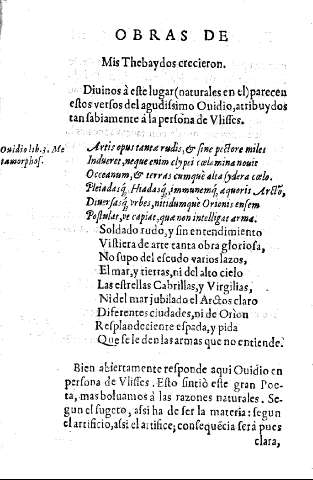 OBRAS DE
Mis Thebaydos crecieron.
Diuinos à este lugar (naturales en el) parecen
estos versos del agudissimo Ouidio, atribuydos
tan sabiamente à la persona de Vlisses.
Ouidio lib. 3. Me
tamorphos.
Artis opus tanta rudis, & sine pectore miles
Indueret, neque enim clypei cœlamina nouit
Occeanum, & terras cumquè alta sydera cœlo.
Pleiadasq́, Hiadasq́, immunemq́, æquoris Arctõ,
Diuersasq́, vrbes, nitidumquè Orionis ensem
Postulat, vt capiat, quæ non intelligat arma.
Soldado rudo, y sin entendimiento
Vistiera de arte tanta obra gloriosa,
No supo del escudo varios lazos,
El mar, y tierras, ni del alto cielo
Las estrellas Cabrillas, y Virgilias,
Ni del mar jubilado el Arctos claro
Diferentes ciudades, ni de Orìon
Resplandeciente espada, y pida
Que se le den las armas que no entiende.
Bien abiertamente responde aqui Ouidio en
persona de Vlisses. Esto sintiò este gran Poe-
ta, mas boluamos à las razones naturales. Se-
gun el sugeto, assi ha de ser la materia: segun
el artificio, assi el artifice; consequẽcia serà pues
clara,